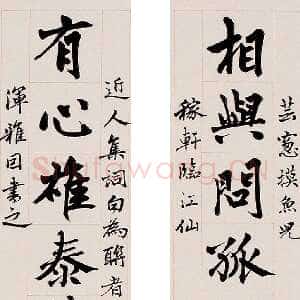 芸窓摸魚兒
相與問孤
稼軒臨江仙
近人集詞句為聯者
有心雄泰
渾雅因書之